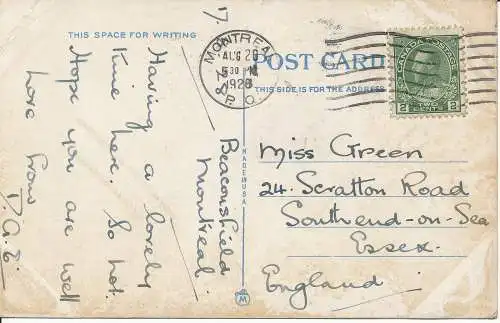 THIS SPACE FOR WRITING
7.
Beaconsfield
Montreal
Having a lovely
time here. So hot.
Hope you are well
Love from
MONTREAL
AUG 26
1928
P.Q.
POST CARD
THIS SIDE IS FOR THE ADDRESS
CANADA POSTAGE
2 TWO CENTS 2
MADE IN USA
Miss Green
24. Scratton Road
Southend-on-Sea
Essex.
England